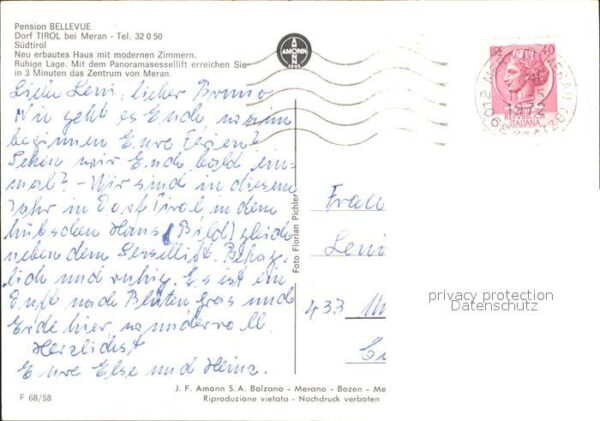 Pension BELLEVUE
Dorf TIROL bei Meran - Tel. 32 0 50
Südtirol
Neu erbautes Haus mit modernen Zimmern.
Ruhige Lage. Mit dem Panoramasessellift erreichen Sie
in 3 Minuten das Zentrum von Meran.
AMONN
LIRE 40
1972
ITALIANA
Liebe Leni, lieber Bruno
Wie geht es Euch wann
beginnen Eure Ferien?
Sehen wir Euch bald ein-
mal? - Wir sind in diesem
Jahr in Dorf Tirol in dem
hübschen Haus (Bild) gleich
neben dem Sessellift. Behag-
lich und ruhig. Es ist ein
Duft nach Blüten Gras und
Erde hier, wundervoll.
Herzlichst
Eure Else und Heinz.
Foto Florian Pichler
Leni
433
privacy protection
Datenschutz
J. F. Amonn S. A. Bolzano - Merano - Bozen - Me
Riproduzione vietata - Nachdruck verboten
F 68/58